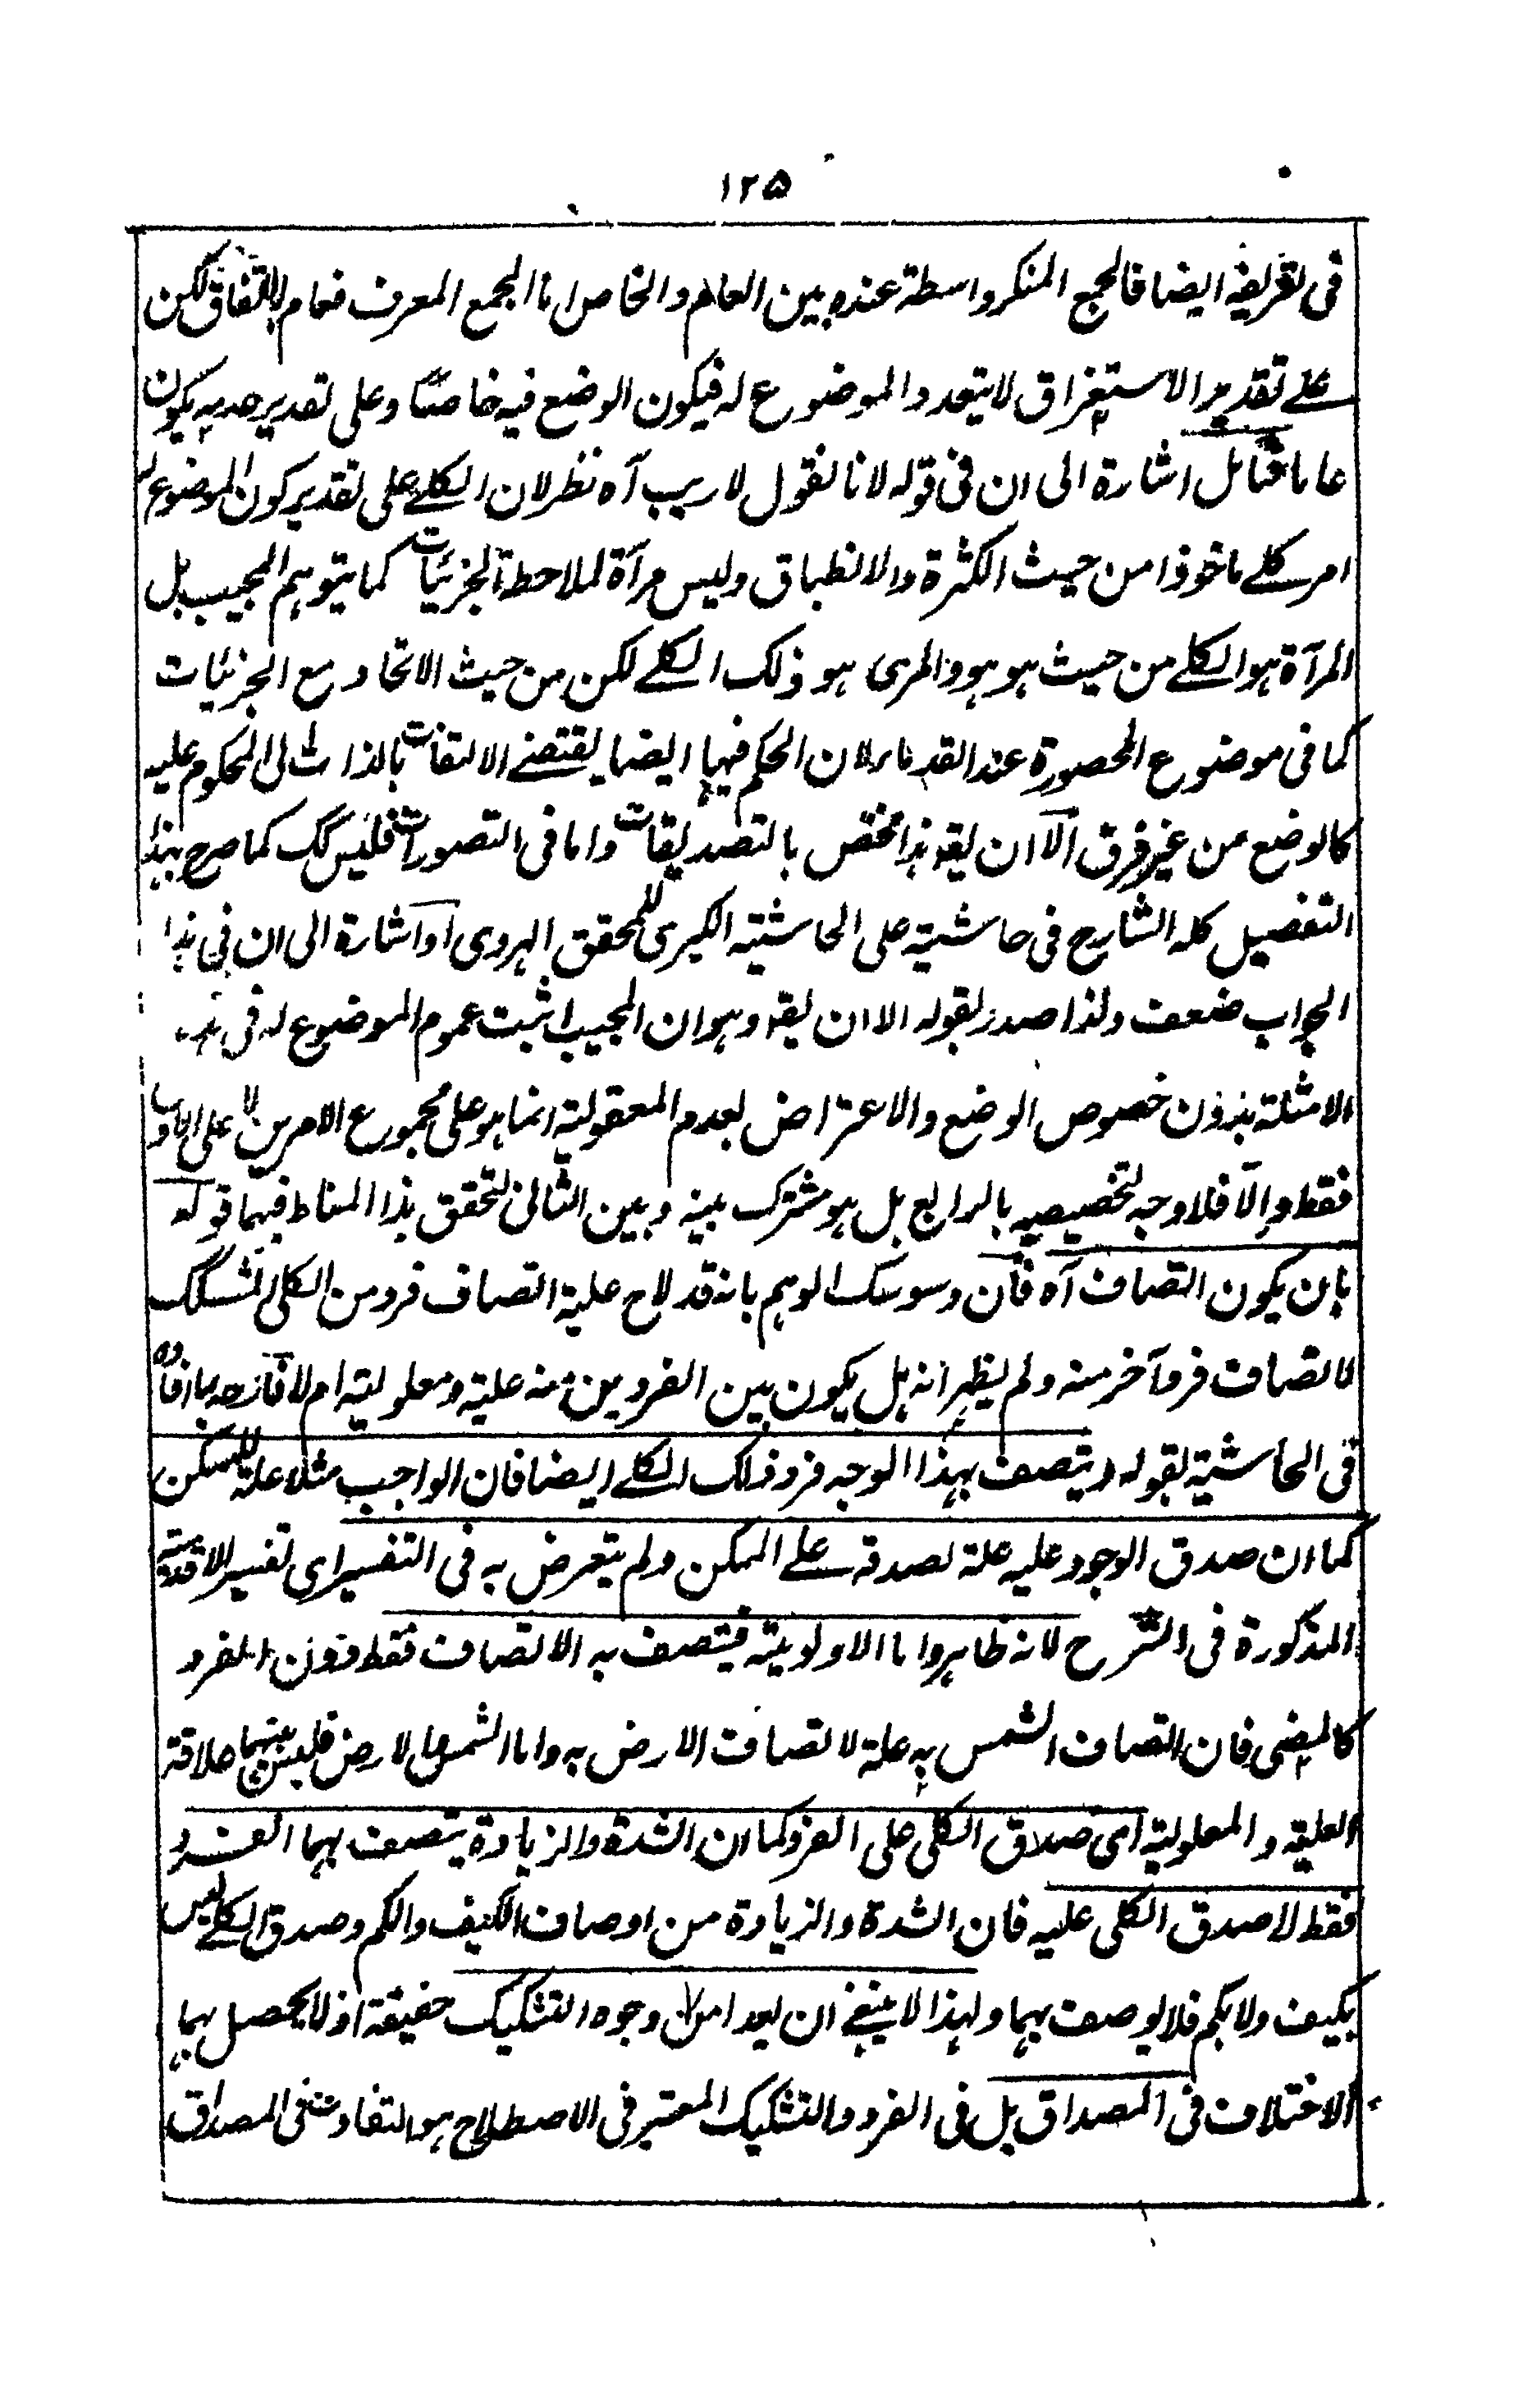 ١٢٥
فى تعريفه ايضا فالجمع المنكر واسطة عنده بين العام والخاص اما الجمع المعرف فعام بالاتفاق لكن
على تقدير الاستغراق لا يتعدد الموضوع له فيكون الوضع فيه خاصا وعلى تقدير عدمه يكون
عاما فتامل اشارة الى ان فى قوله لانا نقول لا ريب آه نظر لان الكلى على تقدير كون الموضوع له
امر كلى ماخوذا من حيث الكثرة والانطباق وليس مرآة لملاحظة الجزئيات كما يتوهم المجيب بل
المرآة هو الكلى من حيث هو هو والمرى هو ذلك الكلى لكن من حيث الاتحاد مع الجزئيات
كما فى موضوع المحصورة عند القدماء لان الحكم فيها ايضا يقتضى الالتفات بالذات الى المحكوم عليه
كالوضع من غير فرق الا ان يقه هذا مختص بالتصديقات واما فى التصورات فليس كك كما صرح بهذا
التفصيل كله الشارح فى حاشية على الحاشية الكبرى للمحقق الهروى او اشارة الى ان فى هذا
الجواب ضعف ولذا صدر بقوله الا ان يقه وهو ان المجيب اثبت عموم الموضوع له فى هذه
الامثلة بدون خصوص الوضع والاعتراض بعدم المعقولية انما هو على مجموع الامرين لا على الاول
فقط والا فلا وجه لتخصيصه بالرابع بل هو مشترك بينه وبين الثانى لتحقق هذا المناط فيهما قوله
بان يكون اتصاف آه فان وسوسك الوهم بانه قد لاح علية اتصاف فرد من الكلى المشكك
لاتصاف فرد آخر منه ولم يظهر انه هل يكون بين الفردين منه علية ومعلولية ام لا فازحه بما افاده
فى الحاشية بقوله ويتصف بهذا الوجه فرد ذلك الكلى ايضا فان الواجب مثلا علة للممكن
كما ان صدق الوجود عليه علة لصدقه على الممكن ولم يتعرض به فى التفسير اى تفسير الاقدمية
المذكورة فى الشرح لانه ظاهر واما الاولوية فيتصف به الاتصاف فقط دون الفرد
كالمضى فان اتصاف الشمس به علة لاتصاف الارض به واما الشمس والارض فليس بينهما علاقة
العلية والمعلولية اى صدق الكلى على الفرد كما ان الشدة والزيادة يتصف بهما الفرد
فقط لا صدق الكلى عليه فان الشدة والزيادة من اوصاف الكيف والكم وصدق الكلى ليس
بكيف ولا بكم فلا يوصف بهما ولهذا لا ينبغى ان يعدا من وجوه التشكيك حقيقة اذ لا يحصل بهما
الاختلاف فى المصداق بل فى الفرد والتشكيك المعتبر فى الاصطلاح هو التفاوت فى المصداق